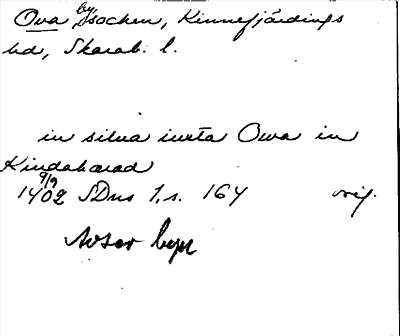 Ova by, socken, Kinnefjärdings
hd, Skarab. l.
in silua iuxta Owa in
Kindaharad
9/9
1402 SDns 1, s. 164 orig.